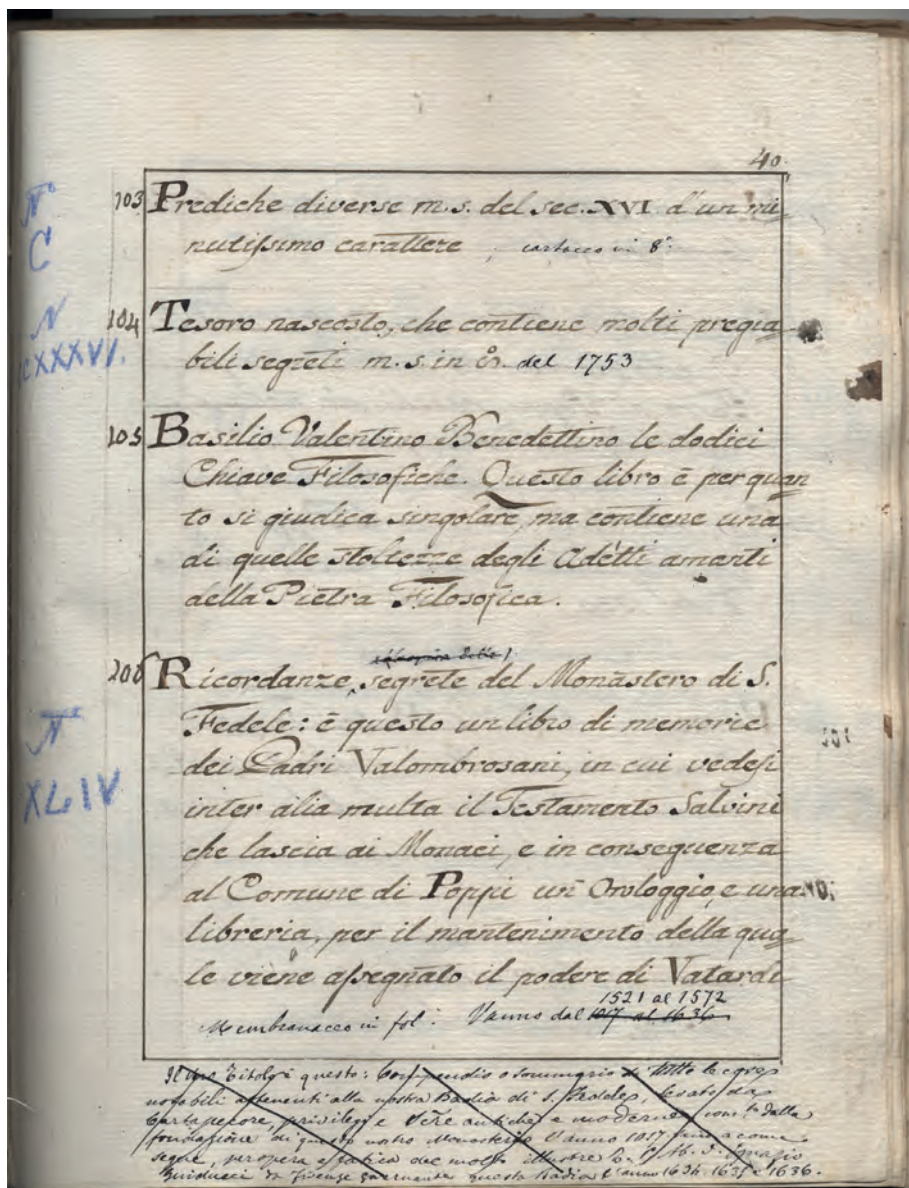 40.
103 Prediche diverse m.s. del sec. XVI. d'un mi-
nutissimo carattere, cartaceo in 8°.
N°
C
104 Tesoro nascosto, che contiene molti pregia-
bili segreti m.s. in 8°. del 1753
N
CXXXVI.
105 Basilio Valentino Benedettino le dodici
Chiave Filosofiche. Questo libro è per quan-
to si giudica singolare, ma contiene una
di quelle stoltezze degli Adetti amanti
della Pietra Filosofica.
106 Ricordanze, segrete del Monastero di S.
Fedele: è questo un libro di memorie
dei Padri Valombrosani, in cui vedesi
N°
XLIV
inter alia multa il Testamento Salvini
che lascia ai Monaci, e in conseguenza
al Comune di Poppi un Orologgio, e una
libreria, per il mantenimento della qua-
le viene assegnato il podere di Vatardi
1521 al 1572
Membranaceo in fol: Vanno dal 1017 al 1636
Il suo Titolo è questo: Compendio o sommario di tutte le cose
notabili attenenti alla nostra Badia di S. Fedele, da
Cartapecore, privilegi e antiche e moderne dalla
fondazione di questo nostro Monasterio l'anno 1017 come
segue, per opera e fatica del molto illustre D.
Guiducci da Firenze governante questa Badia l'anno 1634. 1635 e 1636.